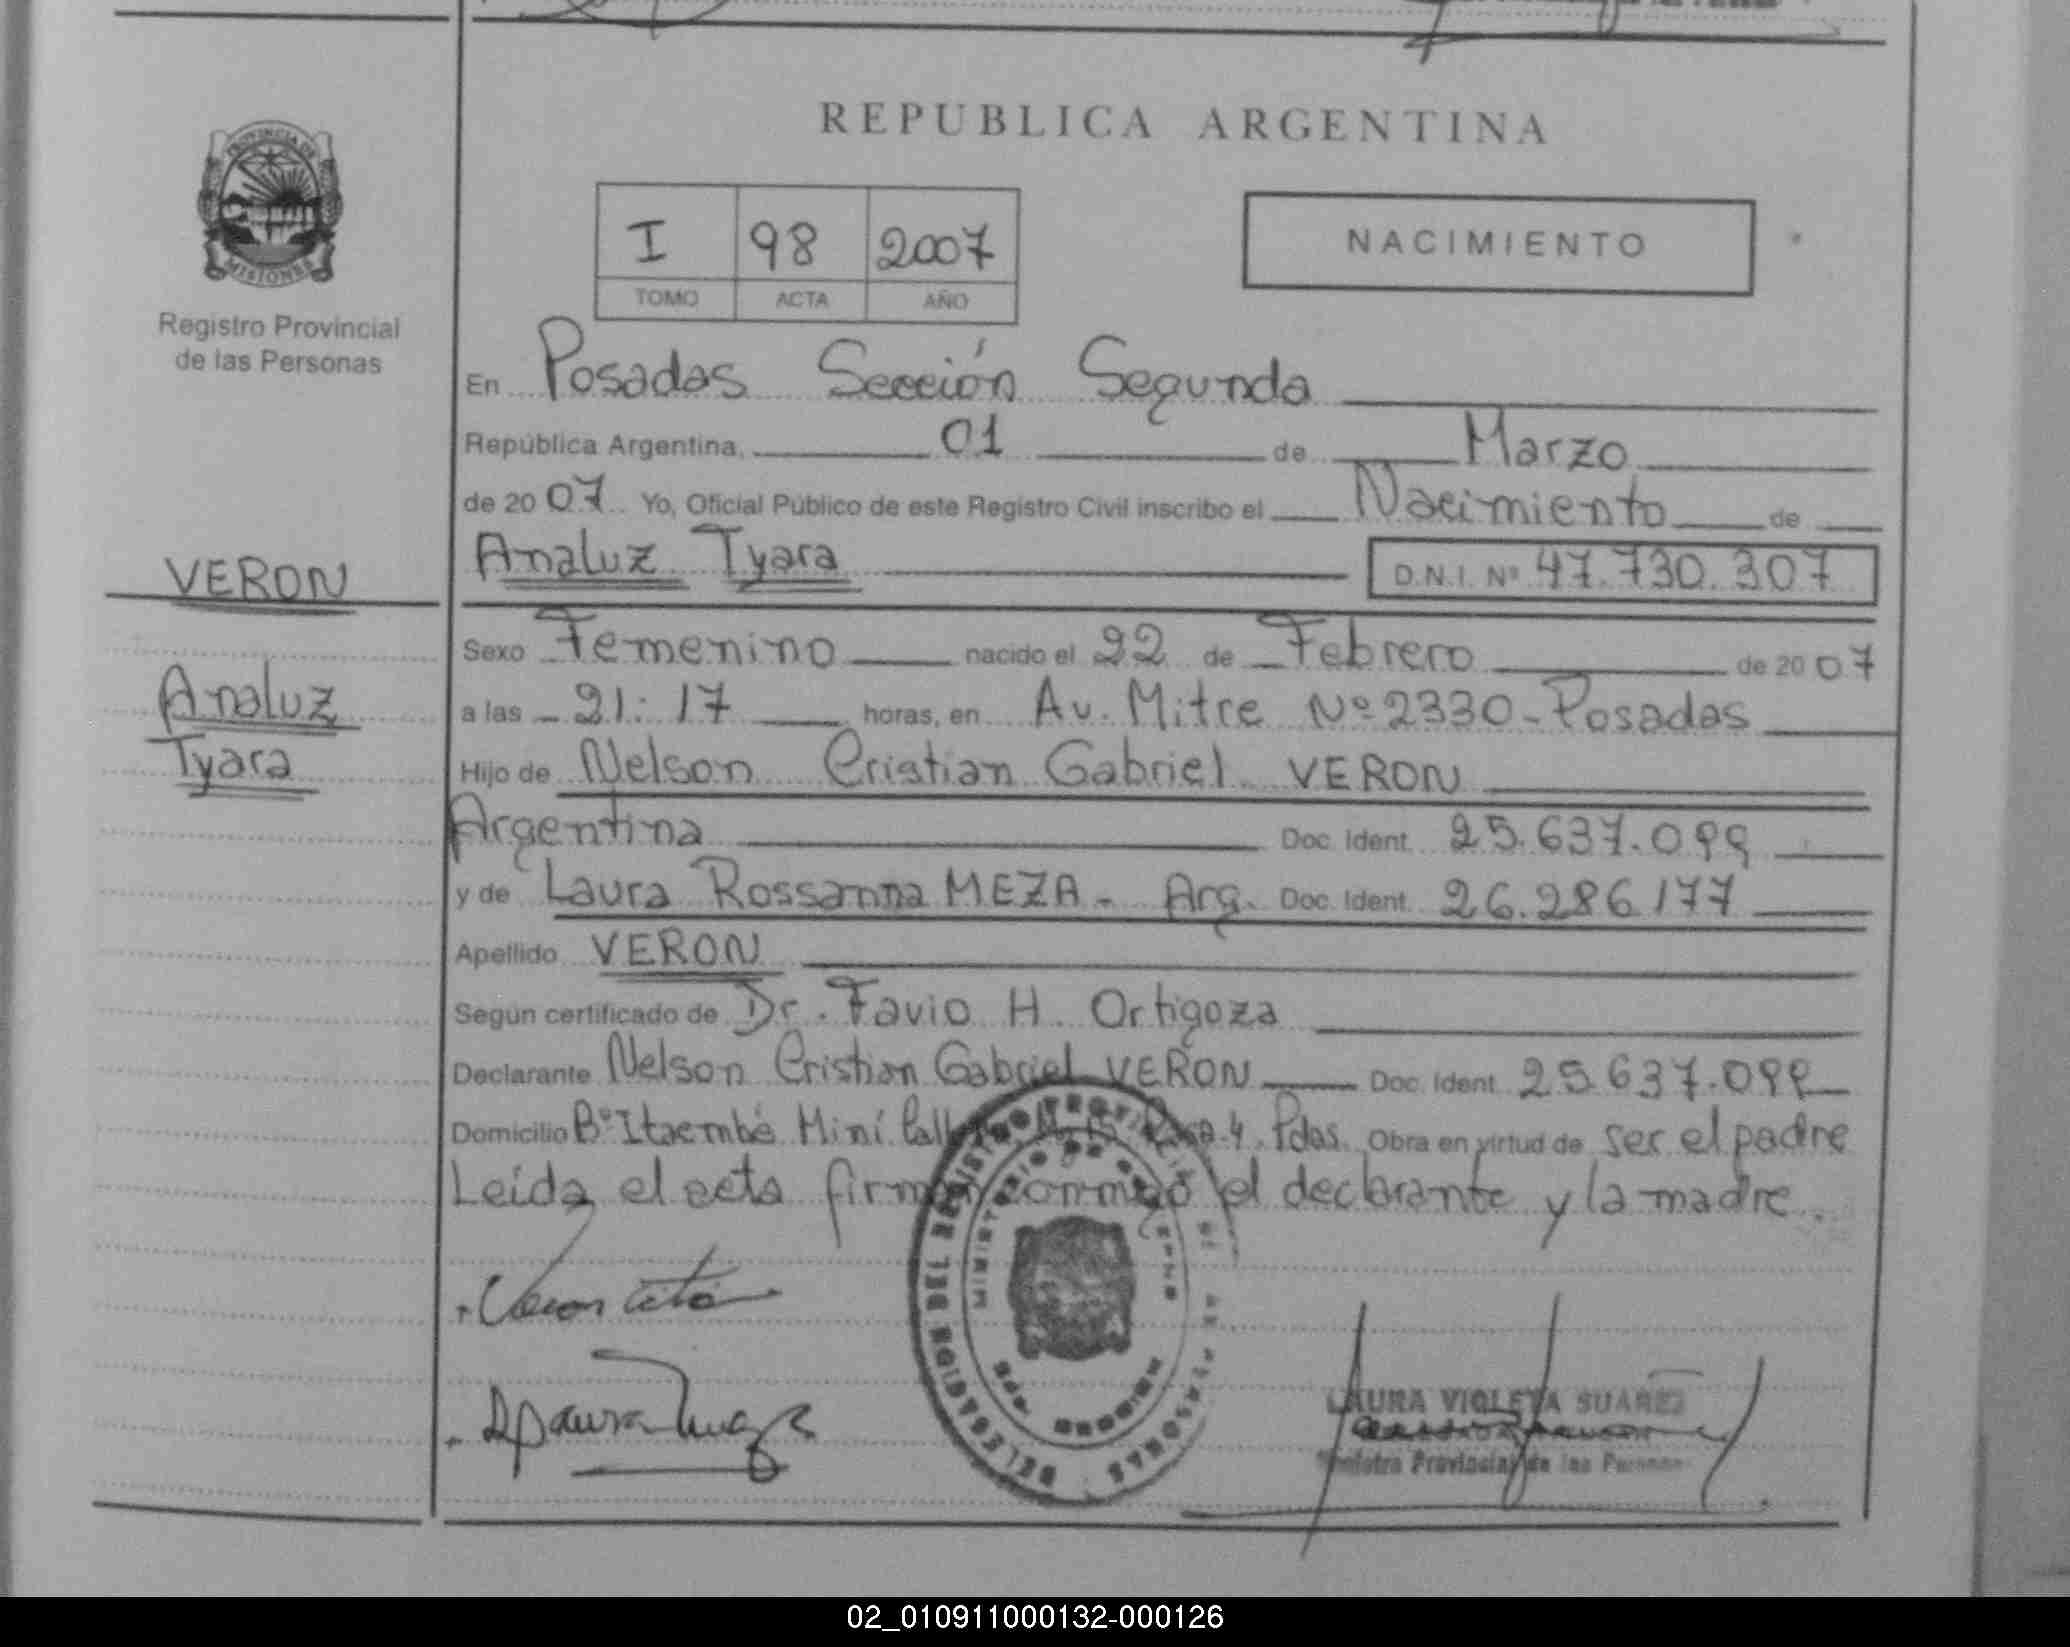 REPUBLICA ARGENTINA
PROVINCIA DE
MISIONES
Registro Provincial
de las Personas
I 98 2007
TOMO ACTA AÑO
NACIMIENTO
En Posadas Sección Segunda
República Argentina, 01 de Marzo
de 20 07 Yo, Oficial Público de este Registro Civil inscribo el Nacimiento de
VERON
Analuz Tyara D.N.I. Nº 47.730.307
Sexo Femenino nacido el 22 de Febrero de 20 07
Analuz
a las 21:17 horas, en Av. Mitre Nº 2330 - Posadas
Tyara
Hijo de Nelson Cristian Gabriel VERON
Argentina Doc. Ident. 25.637.099
y de Laura Rossanna MEZA - Arg. Doc. Ident. 26.286.177
Apellido VERON
Según certificado de Dr. Favio H. Ortigoza
Declarante Nelson Cristian Gabriel VERON Doc. Ident. 25.637.099
Domicilio Bº Itaembé Miní Casa 4 Pdas. Obra en virtud de ser el padre
Leída el acta firman conmigo el declarante y la madre.
LAURA VIOLETA SUAREZ
Provincial de las Personas
02_010911000132-000126